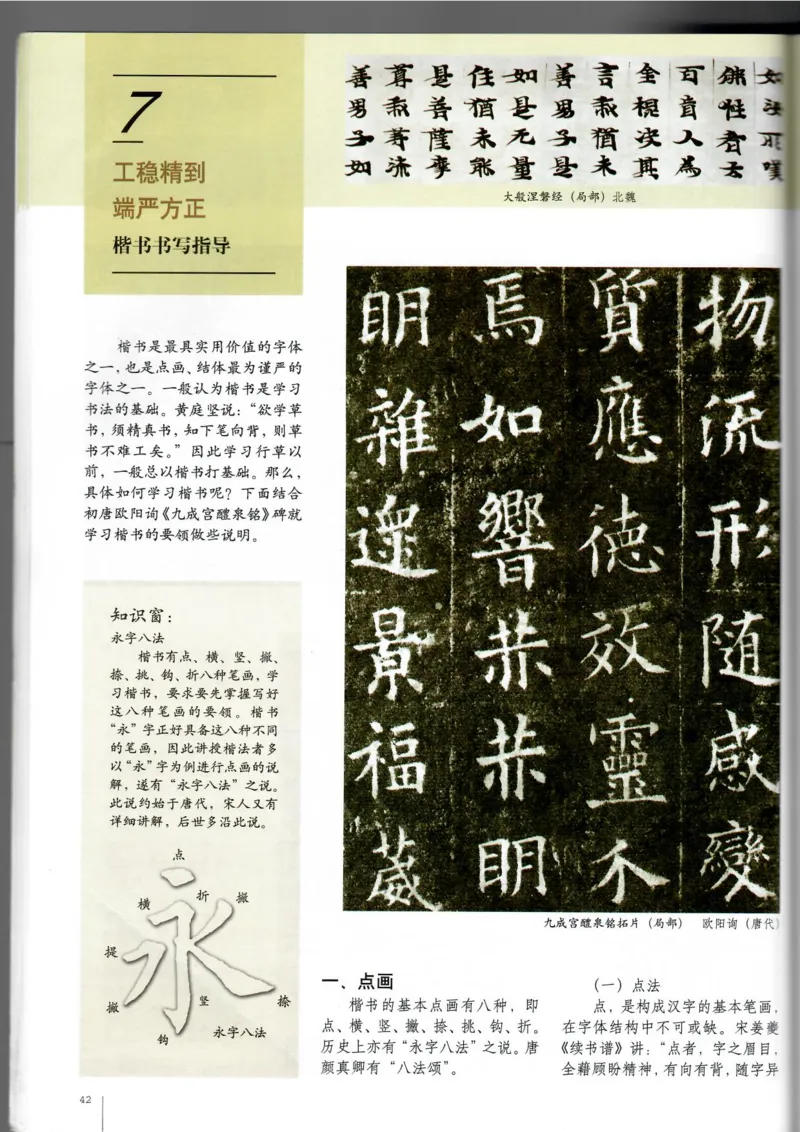 7
工稳精到
端严方正
楷书书写指导
楷书是最具实用价值的字体
之一，也是点画、结体最为谨严的
字体之一。一般认为楷书是学习
书法的基础。黄庭坚说：“欲学草
书，须精真书，知下笔向背，则草
书不难工矣。”因此学习行草以
前，一般总以楷书打基础。那么，
具体如何学习楷书呢？下面结合
初唐欧阳询《九成宫醴泉铭》碑就
学习楷书的要领做些说明。
知识窗：
永字八法
楷书有点、横、竖、撇、
捺、挑、钩、折八种笔画，学
习楷书，要求要先掌握写好
这八种笔画的要领。楷书
“永”字正好具备这八种不同
的笔画，因此讲授楷法者多
以“永”字为例进行点画的说
解，遂有“永字八法”之说。
此说约始于唐代，宋人又有
详细讲解，后世多沿此说。
点
横
折
撇
提
永
撇
竖
捺
钩
永字八法
如法
佛性者言
可賣人為
全棍决其
言教猶未
善男子是
如是无量
住猶未能
是善薩摩
尊教尊流
善男子如
大般涅磐经（局部）北魏
物流形随感變
質應德效靈不
焉如響赫赫明
明雜遝景福葳
九成宫醴泉铭拓片（局部） 欧阳询（唐代）
一、点画
楷书的基本点画有八种，即
点、横、竖、撇、捺、挑、钩、折。
历史上亦有“永字八法”之说。唐
颜真卿有“八法颂”。
（一）点法
点，是构成汉字的基本笔画，
在字体结构中不可或缺。宋姜夔
《续书谱》讲：“点者，字之眉目，
全藉顾盼精神，有向有背，随字异
42